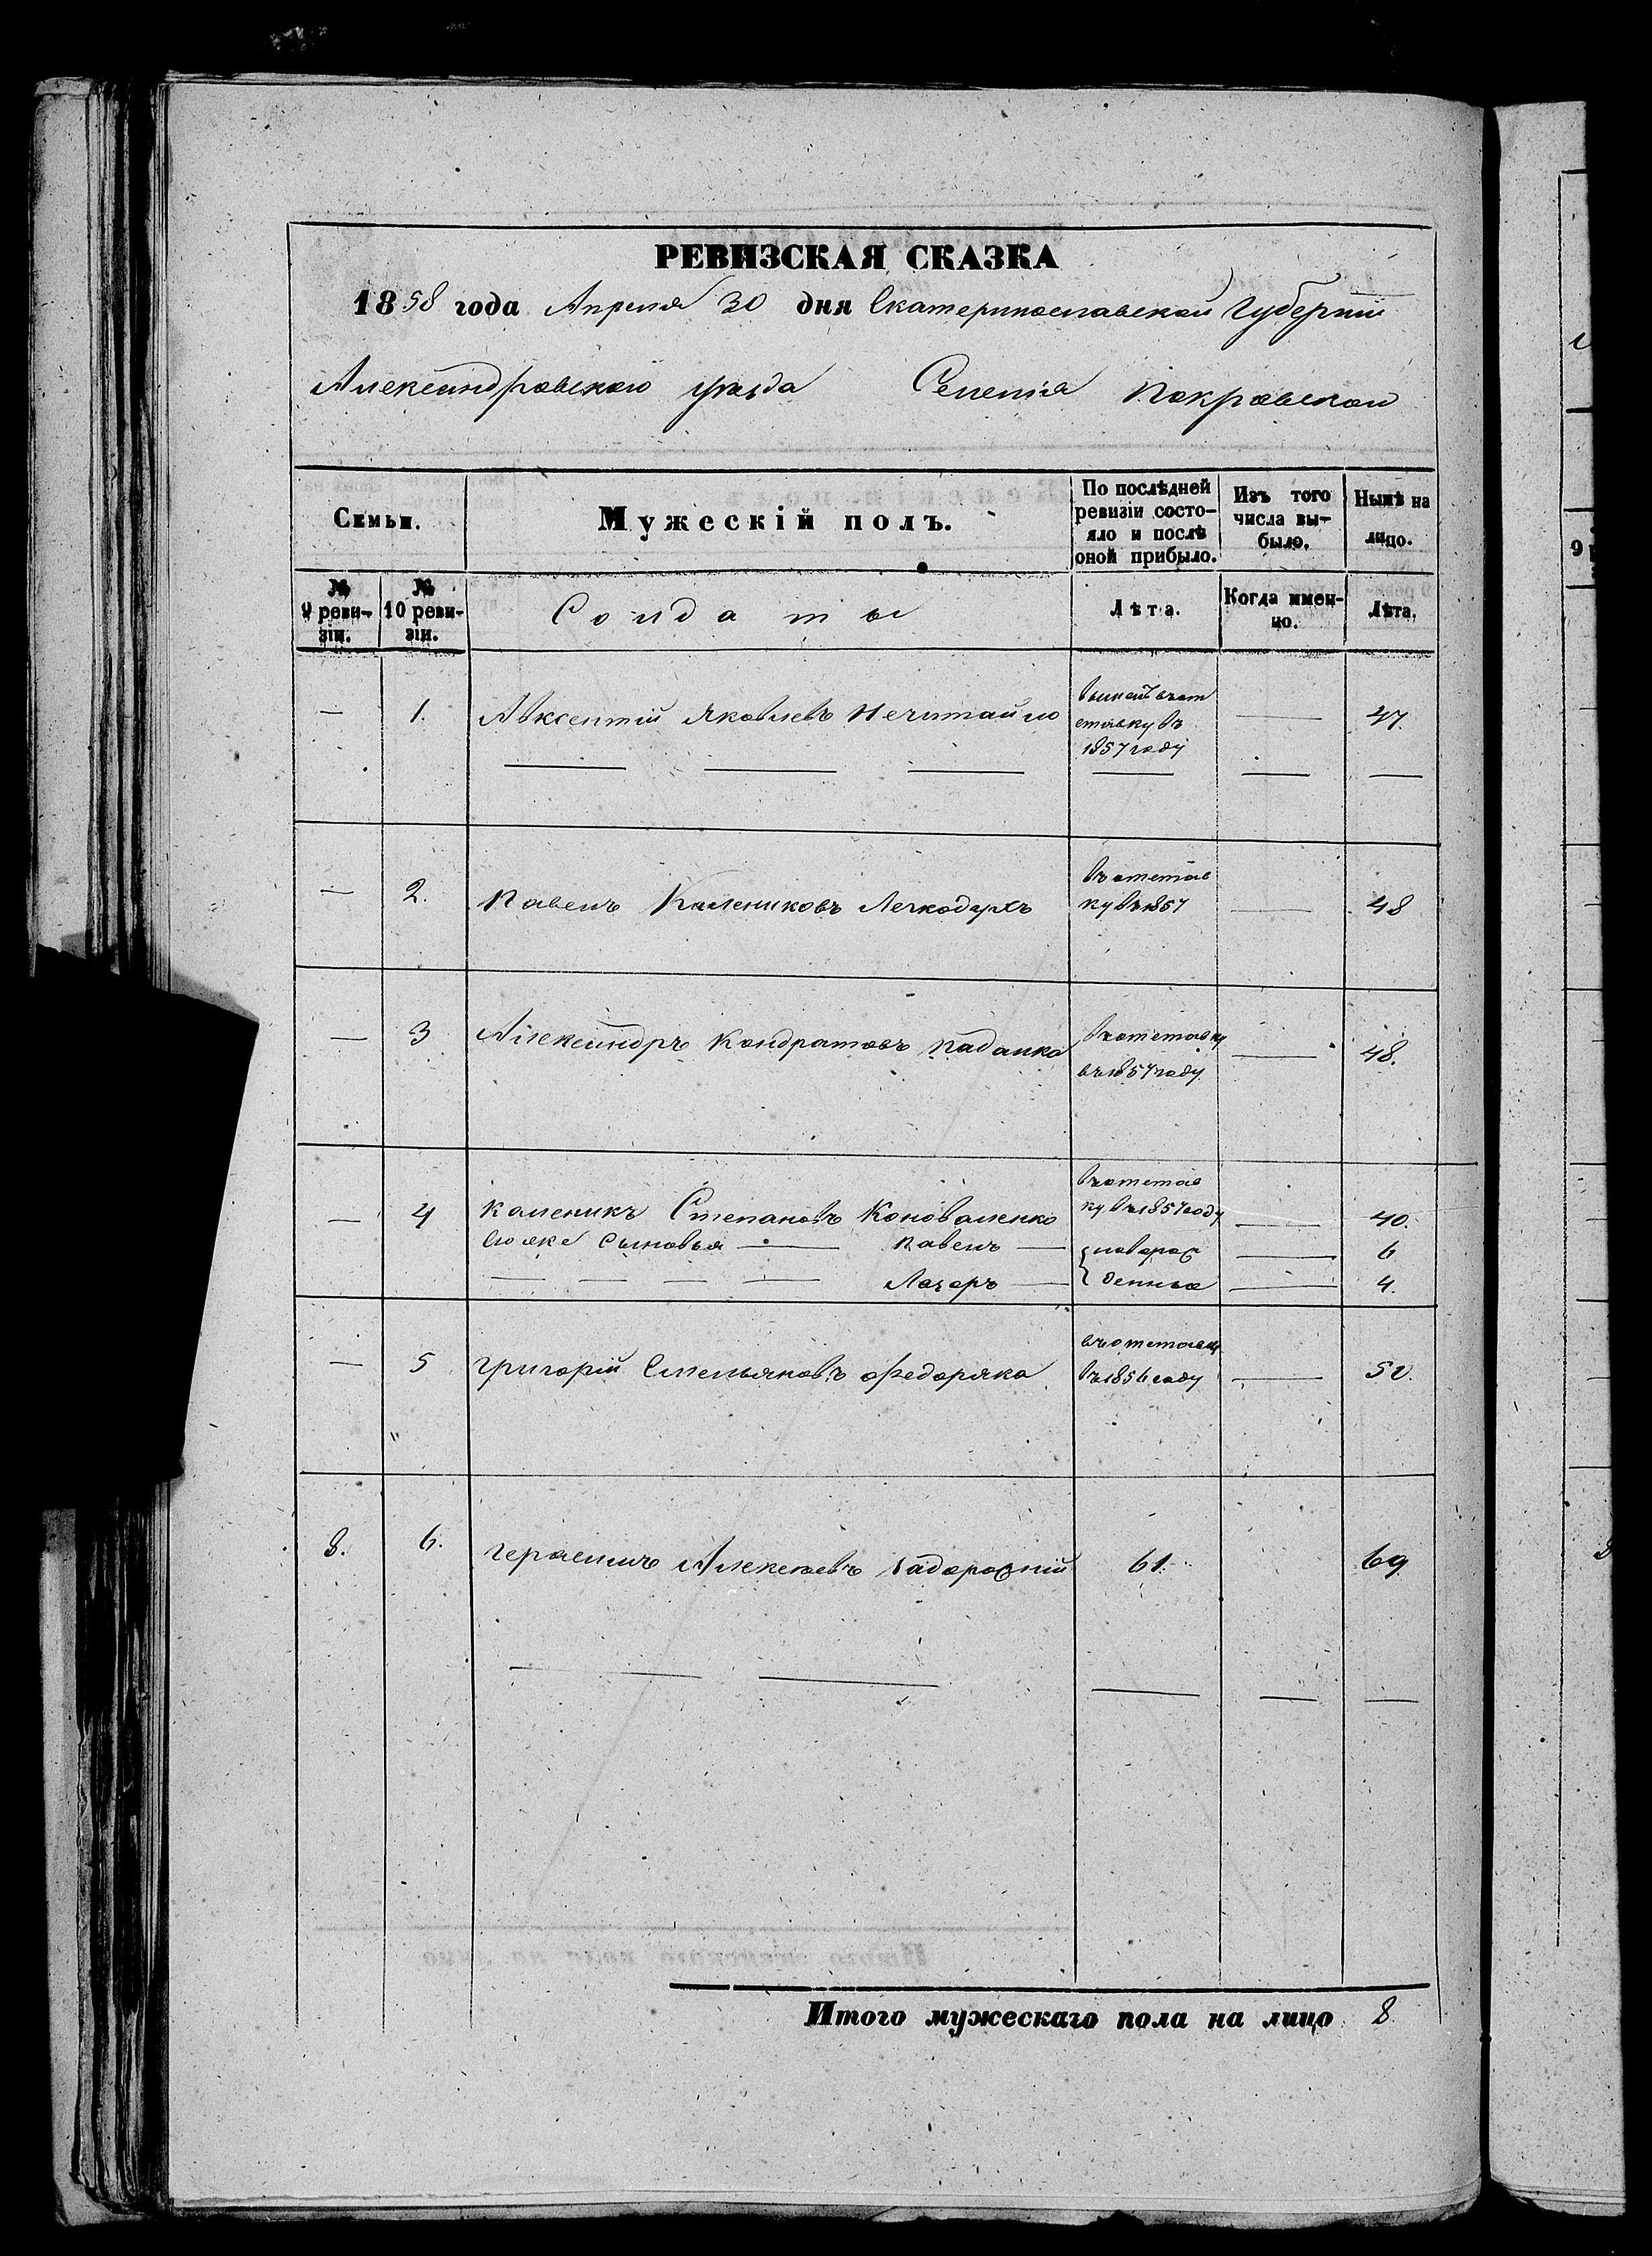 РЕВИЗСКАЯ СКАЗКА
1858 года Апреля 30 дня Екатеринославской Губернии
Александровского уезда Селенія Покровскои
Семьи. Мужескій полъ. По послѣдней ревизіи состо-яло и послѣ оной прибыло. Изъ того числа вы-было. Нынѣ на лицо.
№ 9 реви-зіи. № 10 реви-зіи. Солдаты Лѣта. Когда имен-но. Лѣта.
— 1. Авксентій Яковлевъ Нечитайло
ставку въ
1857 году — 47.
— 2. Павелъ Калениковъ Легкодухъ
въ отстав
ку въ 1857 — 48
— 3 Александръ Кондратовъ Падалка
въ отставку
въ 1857 году — 48.
— 4 Каленикъ Степановъ Коноваленко
въ отстав
ку въ 1857 году — 40.
Его же Сыновья — Павелъ — новорож — 6
— — — — Лазарь — денные — 4.
— 5 Григорій Емельяновъ Федоряка
въ отставку
въ 1856 году — 52.
8. 6. Герасимъ Алексеевъ Задорожній 61. 69
Итого мужескаго пола на лицо 8
9